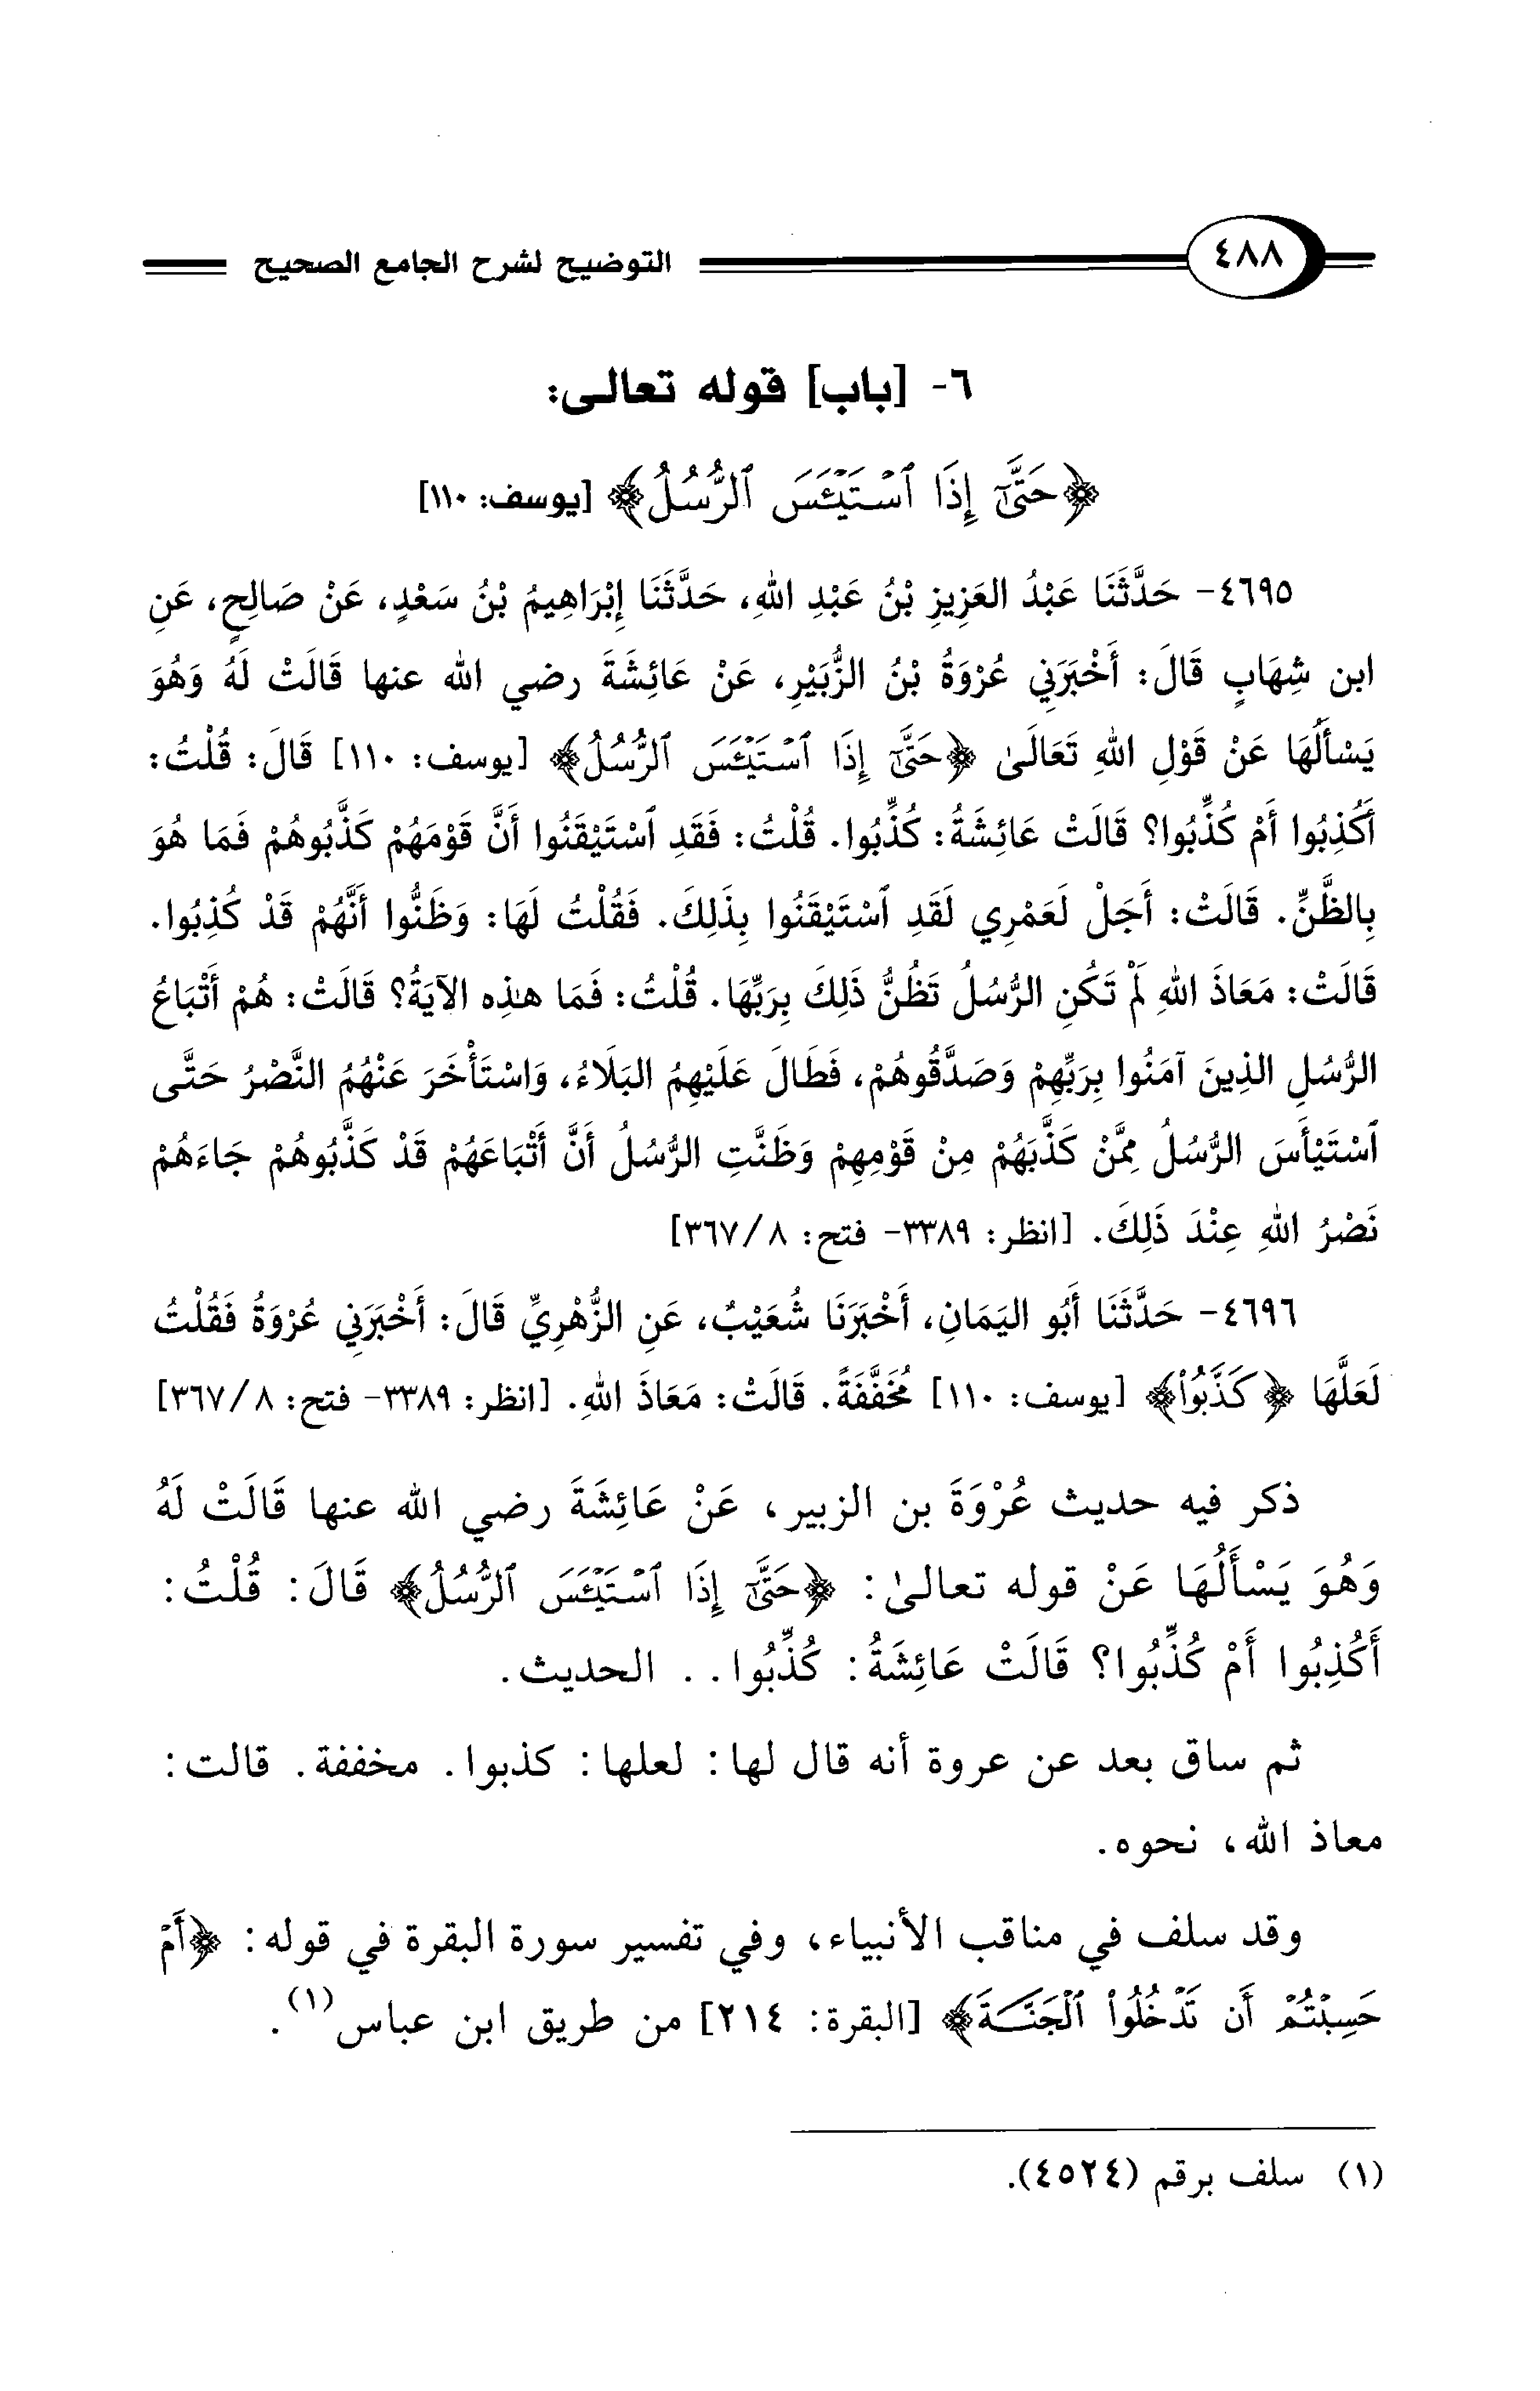 ٤٨٨ التوضيح لشرح الجامع الصحيح
٦- [باب] قوله تعالى:
﴿حَتَّىٰٓ إِذَا ٱسْتَيْـَٔسَ ٱلرُّسُلُ﴾ [يوسف: ١١٠]
٤٦٩٥- حَدَّثَنَا عَبْدُ العَزِيزِ بْنُ عَبْدِ اللهِ، حَدَّثَنَا إِبْرَاهِيمُ بْنُ سَعْدٍ، عَنْ صَالِحٍ، عَنِ
ابن شِهَابٍ قَالَ: أَخْبَرَنِي عُرْوَةُ بْنُ الزُّبَيْرِ، عَنْ عَائِشَةَ رضي الله عنها قَالَتْ لَهُ وَهُوَ
يَسْأَلُهَا عَنْ قَوْلِ اللهِ تَعَالَىٰ ﴿حَتَّىٰٓ إِذَا ٱسْتَيْـَٔسَ ٱلرُّسُلُ﴾ [يوسف: ١١٠] قَالَ: قُلْتُ:
أَكُذِبُوا أَمْ كُذِّبُوا؟ قَالَتْ عَائِشَةُ: كُذِّبُوا. قُلْتُ: فَقَدِ ٱسْتَيْقَنُوا أَنَّ قَوْمَهُمْ كَذَّبُوهُمْ فَمَا هُوَ
بِالظَّنِّ. قَالَتْ: أَجَلْ لَعَمْرِي لَقَدِ ٱسْتَيْقَنُوا بِذَلِكَ. فَقُلْتُ لَهَا: وَظَنُّوا أَنَّهُمْ قَدْ كُذِبُوا.
قَالَتْ: مَعَاذَ اللهِ لَمْ تَكُنِ الرُّسُلُ تَظُنُّ ذَلِكَ بِرَبِّهَا. قُلْتُ: فَمَا هٰذِه الآيَةُ؟ قَالَتْ: هُمْ أَتْبَاعُ
الرُّسُلِ الذِينَ آمَنُوا بِرَبِّهِمْ وَصَدَّقُوهُمْ، فَطَالَ عَلَيْهِمُ البَلَاءُ، وَاسْتَأْخَرَ عَنْهُمُ النَّصْرُ حَتَّى
ٱسْتَيْأَسَ الرُّسُلُ مِمَّنْ كَذَّبَهُمْ مِنْ قَوْمِهِمْ وَظَنَّتِ الرُّسُلُ أَنَّ أَتْبَاعَهُمْ قَدْ كَذَّبُوهُمْ جَاءَهُمْ
نَصْرُ اللهِ عِنْدَ ذَلِكَ. [انظر: ٣٣٨٩- فتح: ٨/ ٣٦٧]
٤٦٩٦- حَدَّثَنَا أَبُو اليَمَانِ، أَخْبَرَنَا شُعَيْبٌ، عَنِ الزُّهْرِيِّ قَالَ: أَخْبَرَنِي عُرْوَةُ فَقُلْتُ
لَعَلَّهَا ﴿كَذَّبُواْ﴾ [يوسف: ١١٠] مُخَفَّفَةً. قَالَتْ: مَعَاذَ اللهِ. [انظر: ٣٣٨٩- فتح: ٨/ ٣٦٧]
ذكر فيه حديث عُرْوَةَ بن الزبير، عَنْ عَائِشَةَ رضي الله عنها قَالَتْ لَهُ
وَهُوَ يَسْأَلُهَا عَنْ قوله تعالىٰ: ﴿حَتَّىٰٓ إِذَا ٱسْتَيْـَٔسَ ٱلرُّسُلُ﴾ قَالَ: قُلْتُ:
أَكُذِبُوا أَمْ كُذِّبُوا؟ قَالَتْ عَائِشَةُ: كُذِّبُوا. . الحديث.
ثم ساق بعد عن عروة أنه قال لها: لعلها: كذبوا. مخففة. قالت:
معاذ الله، نحوه.
وقد سلف في مناقب الأنبياء، وفي تفسير سورة البقرة في قوله: ﴿أَمْ
حَسِبْتُمْ أَن تَدْخُلُواْ ٱلْجَنَّةَ﴾ [البقرة: ٢١٤] من طريق ابن عباس(١).
(١) سلف برقم (٤٥٢٤).